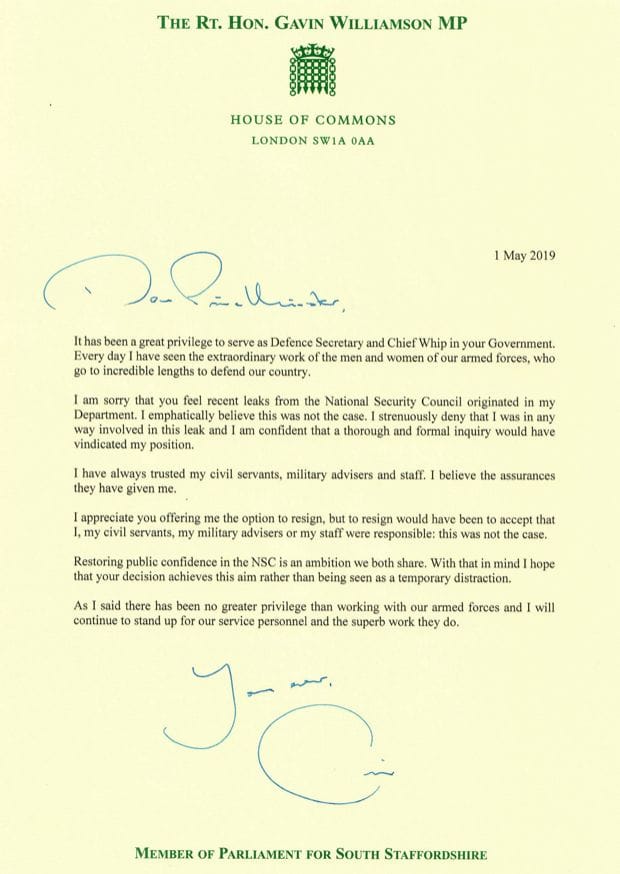 THE RT. HON. GAVIN WILLIAMSON MP
HOUSE OF COMMONS
LONDON SW1A 0AA
1 May 2019
Dear Prime Minister,
It has been a great privilege to serve as Defence Secretary and Chief Whip in your Government.
Every day I have seen the extraordinary work of the men and women of our armed forces, who
go to incredible lengths to defend our country.
I am sorry that you feel recent leaks from the National Security Council originated in my
Department. I emphatically believe this was not the case. I strenuously deny that I was in any
way involved in this leak and I am confident that a thorough and formal inquiry would have
vindicated my position.
I have always trusted my civil servants, military advisers and staff. I believe the assurances
they have given me.
I appreciate you offering me the option to resign, but to resign would have been to accept that
I, my civil servants, my military advisers or my staff were responsible: this was not the case.
Restoring public confidence in the NSC is an ambition we both share. With that in mind I hope
that your decision achieves this aim rather than being seen as a temporary distraction.
As I said there has been no greater privilege than working with our armed forces and I will
continue to stand up for our service personnel and the superb work they do.
Yours ever,
MEMBER OF PARLIAMENT FOR SOUTH STAFFORDSHIRE